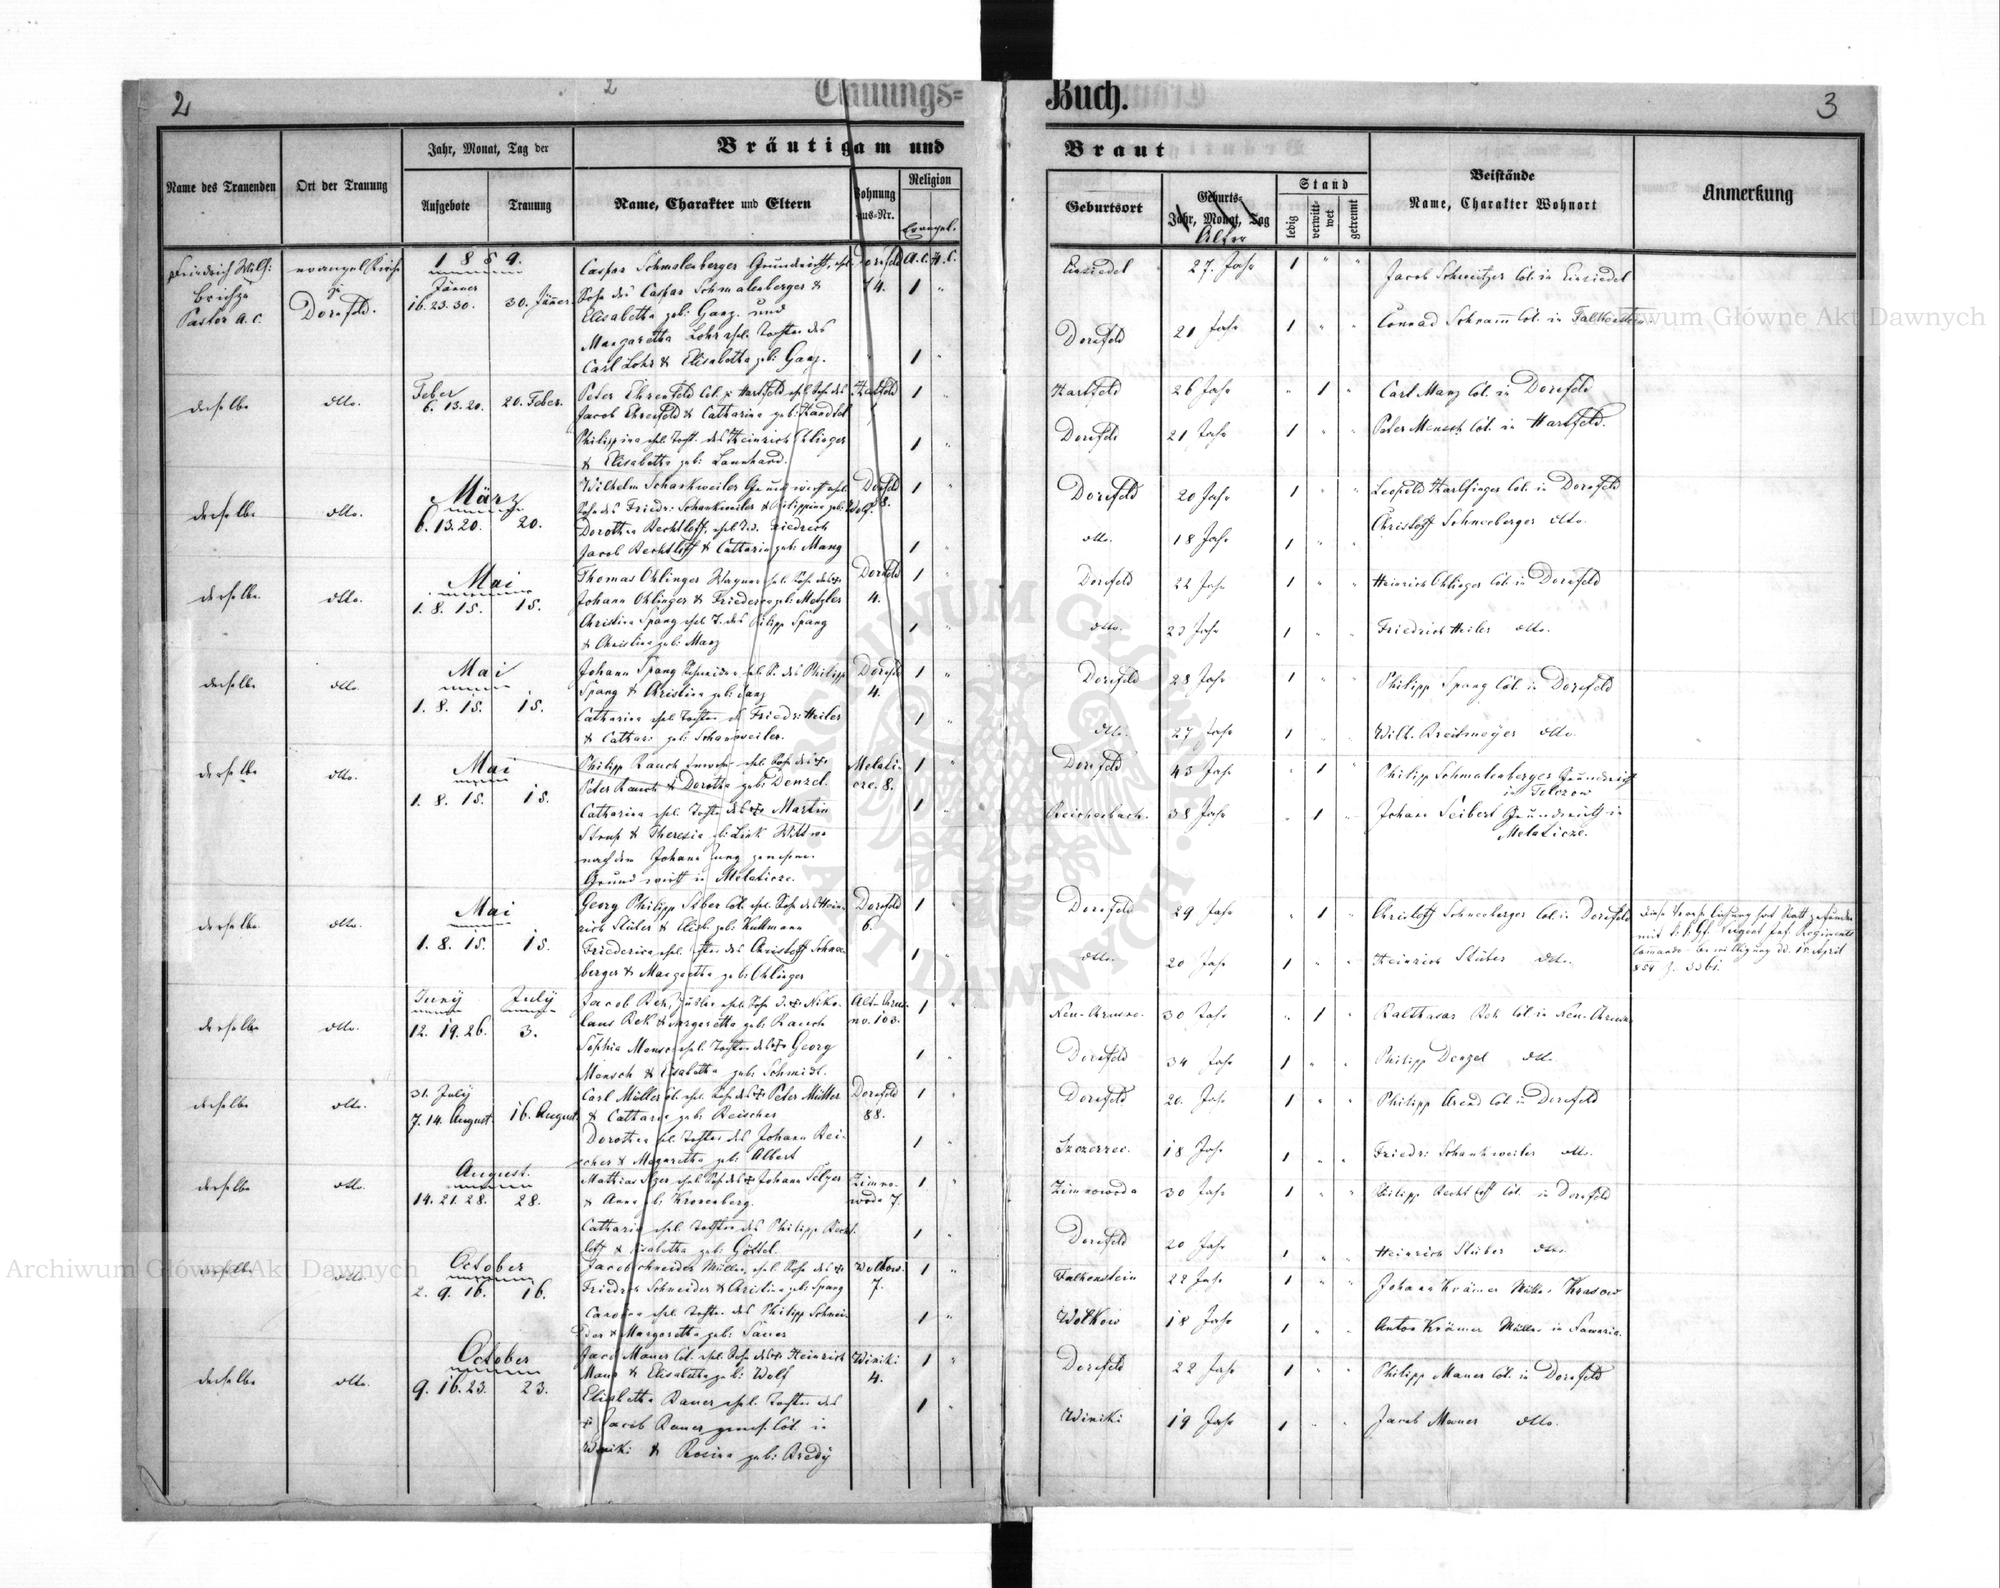 2
2
Trauungs=
Buch.
3
Name des Trauenden
Ort der Trauung
Jahr, Monat, Tag der
Aufgebote
Trauung
Bräutigam und
Name, Charakter und Eltern
Wohnung
Haus-Nr.
Religion
Evangel.
Braut
Geburtsort
Geburts-
Jahr, Monat, Tag
Alter
Stand
ledig
verwitt-
wet
getrennt
Beistände
Name, Charakter Wohnort
Anmerkung
Friedrich Wilh:
Pastor A. C.
evangel. Kirche
zu
Dornfeld.
1859.
Jänner
16. 23. 30.
30. Jänner.
Caspar Schmalenberger Grundwirth, ehel.
Sohn des Caspar Schmalenberger &
Elisabetha geb: Ganz. und
Margaretha Lohr ehel. Tochter des
Carl Lohr & Elisabetha geb: Ganz.
Dornfeld
74.
A. C.
H. C.
1
1
Einsiedel
27. Jahr
1
Jacob Schweitzer Col. in Einsiedel
Dornfeld
21 Jahr
1
Conrad Schramm Col. in Falkenstein
derselbe
dtto.
Feber
6. 13. 20.
20. Feber.
Peter Ehrenfeld Col. z. Hartfeld ehel. Sohn des
Jacob Ehrenfeld & Catharina geb:
Philippina ehel. Tocht. des Heinrich Ohlinger
& Elisabetha geb: Lannhard.
Hartfeld
1
1
Hartfeld
26 Jahr
1
Carl Manz Col. in Dornfeld
Dornfeld
21 Jahr
1
Peter Mensch Col. in Hartfeld.
derselbe
dtto.
März
6. 13. 20.
20.
Wilhelm Schankweiler Grundwirth ehel.
Sohn des Friedr: Schankweiler & Philippina geb: Wolf.
Dorothea Bechtloff, ehel. T. d. Friedrich
Jacob Bechtloff & Catharina geb: Manz
Dornfeld
8.
1
1
Dornfeld
20 Jahr
1
Leopold Karlfinger Col. in Dornfeld
dtto.
18 Jahr
1
Christoff Schneeberger dtto.
derselbe
dtto.
Mai
1. 8. 15.
15.
Thomas Ohlinger Wagner ehel. Sohn des
Johann Ohlinger & Friederica geb: Metzler
Christina Spang ehel. T. des Philipp Spang
& Christina geb: Manz
Dornfeld
4.
1
1
Dornfeld
22 Jahr
1
Heinrich Ohlinger Col. in Dornfeld
dtto.
23 Jahr
1
Friedrich Heiler dtto.
derselbe
dtto.
Mai
1. 8. 15.
15.
Johann Spang Schneider ehel. S. des Philipp
Spang & Christina geb: Manz
Catharina ehel. Tochter d. Friedr: Heiler
& Cathar: geb: Schankweiler.
Dornfeld
4.
1
1
Dornfeld
28 Jahr
1
Philipp Spang Col. in Dornfeld
dtto.
27 Jahr
1
Wilh. Breitmayer dtto.
derselbe
dtto.
Mai
1. 8. 15.
15.
Philipp Rauch Inwohner ehel. Sohn des
Peter Rauch & Dorothea geb: Denzel.
Catharina ehel. Tochter des Martin
& Theresia geb: Link Wittwe
nach dem Johann Jung gewesene
Grundwirth in Melaticze.
Melati-
cze. 8.
1
1
Dornfeld
43 Jahr
1
Philipp Schmalenberger Grundwirth
Reichenbach.
38 Jahr
1
Johann Seibert Grundwirth in
Melaticze.
derselbe
dtto.
Mai
1. 8. 15.
15.
Georg Philipp Stüber Col. ehel. Sohn des Hein-
rich Stüber & Elisb. geb: Kuttmann
Friederica ehel. Tochter des Christoff Schnee-
berger & Margaretha geb: Ohlinger
Dornfeld
6.
1
1
Dornfeld
29 Jahr
1
Christoff Schneeberger Col. in Dornfeld
dtto.
20 Jahr
1
Heinrich Stüber dtto.
derselbe
dtto.
Juny
12. 19. 26.
July
3.
Jacob Bek, Häusler ehel. Sohn d. Niko-
laus Bek & Margaretha geb: Rauch
Sophia Mensch ehel. Tochter des Georg
Mensch & Elisabetha geb: Schmidt.
no. 103.
1
1
30 Jahr
1
Balthasar Bek Col. in
Dornfeld
34 Jahr
1
Philipp Denzel dtto.
derselbe
dtto.
31. July
7. 14. August.
16. August.
Carl Müller Col. ehel. Sohn des Peter Müller
& Catharina geb: Reischer
Dorothea ehel. Tochter des Johann Rei-
scher & Margaretha geb: Albert
Dornfeld
88.
1
1
Dornfeld
20. Jahr
1
Philipp Arend Col. in Dornfeld
Szczerzec.
18 Jahr
1
Friedr: Schankweiler dtto.
derselbe
dtto.
August.
14. 21. 28.
28.
Mathias Selzer ehel. Sohn des Johann Selzer
& Anna geb: Kronenberg.
Catharina ehel. Tochter des Philipp Becht-
loff & Elisabetha geb: Göttel.
Zimno-
woda 7.
1
1
Zimnowoda
30 Jahr
1
Philipp Bechtloff Col. in Dornfeld
Dornfeld
20 Jahr
1
Heinrich Stüber dtto.
derselbe
dtto.
October
2. 9. 16.
16.
Jacob Schneider Müller, ehel. Sohn des
Friedrich Schneider & Christina geb: Spang
Carolina ehel. Tochter des Philipp Schnei-
der & Margaretha geb: Sauer
Wolkow.
7.
1
1
Falkenstein
22 Jahr
1
Johann Krämer Müller Krasow
Wolkow
18 Jahr
1
Anton Krämer Müller in
derselbe
dtto.
October
9. 16. 23.
23.
Jacob Mauer Col. ehel. Sohn des Heinrich
Mauer & Elisabetha geb: Wolf
Elisabetha Bauer ehel. Tochter des
Jacob Bauer gewes. Col. in
Winiki & Rosina geb: Bredy
Winiki
4.
1
1
Dornfeld
22 Jahr
1
Philipp Mauer Col. in Dornfeld
Winiki
19 Jahr
1
Jacob Mauer dtto.
Archiwum Główne Akt Dawnych
Archiwum Główne Akt Dawnych
ARCHIWUM GŁÓWNE
AKT DAWNYCH